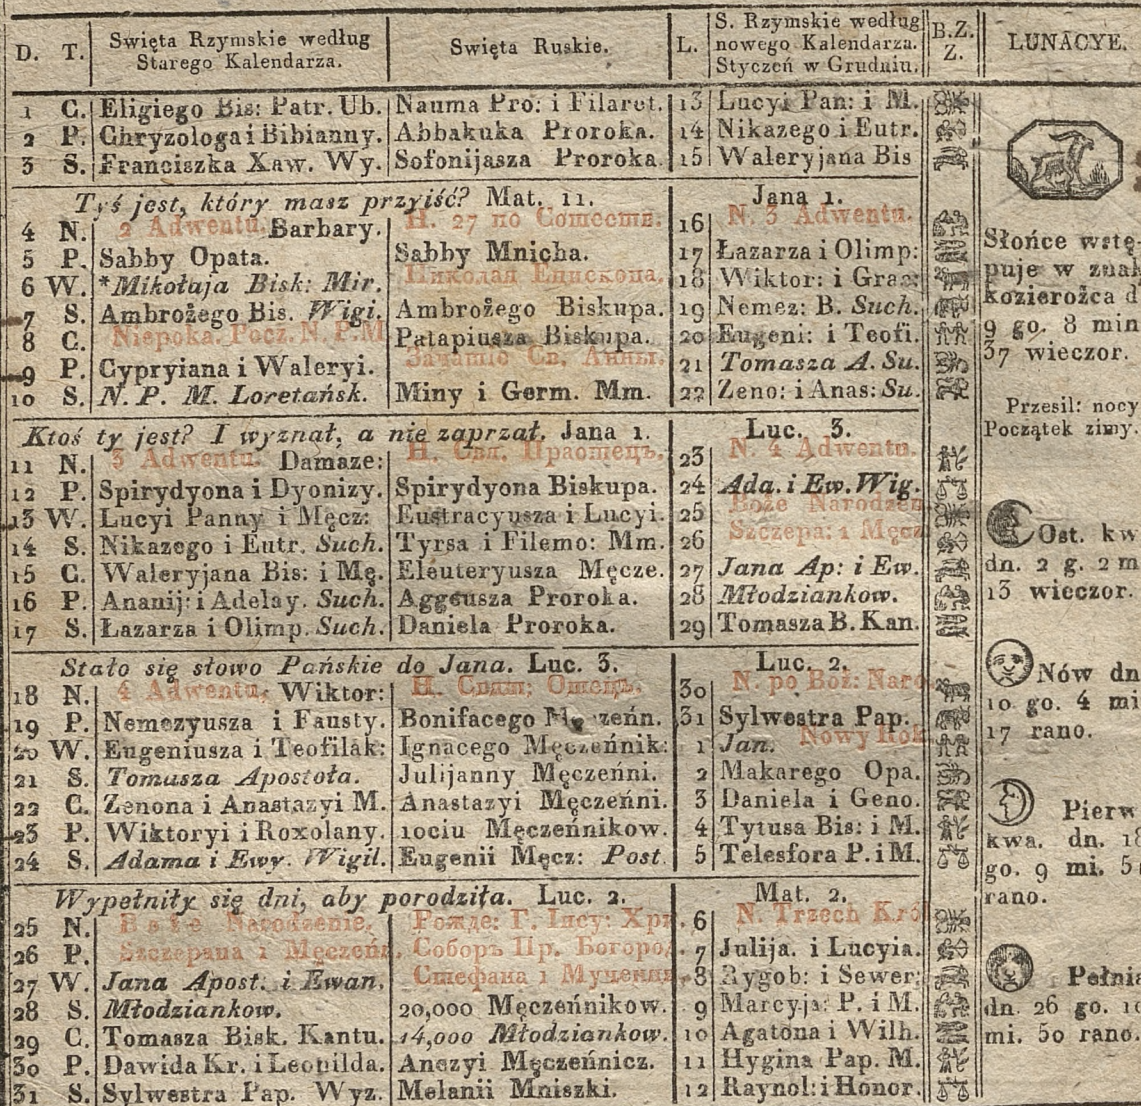 D. T. Swięta Rzymskie według Starego Kalendarza. Swięta Ruskie. L. S. Rzymskie według nowego Kalendarza. Styczeń w Grudniu. B.Z. Z. LUNACYE.
1 C. Eligiego Bis: Patr. Ub. Nauma Pro: i Filaret. 13 Lucyi Pan: i M.
2 P. Chryzologa i Bibianny. Abbakuka Proroka. 14 Nikazego i Eutr.
3 S. Franciszka Xaw. Wy. Sofonijasza Proroka. 15 Waleryjana Bis
Tyś jest, który masz przyiść? Mat. 11. Jana 1.
4 N. 2 Adwentu. Barbary. Н. 27 по Сошеств. 16 N. 3 Adwentu.
5 P. Sabby Opata. Sabby Mnicha. 17 Łazarza i Olimp:
6 W. *Mikołaja Bisk: Mir. Николая Епископа. 18 Wiktor: i Grac:
7 S. Ambrożego Bis. Wigi. Ambrożego Biskupa. 19 Nemez: B. Such.
8 C. Niepoka. Pocz. N. P. M Patapiusza Biskupa. 20 Eugeni: i Teofi.
9 P. Cypryiana i Waleryi. Зачатіе Св. Анны. 21 Tomasza A. Su.
10 S. N. P. M. Loretańsk. Miny i Germ. Mm. 22 Zeno: i Anas: Su.
Ktoś ty jest? I wyznał, a nie zaprzał. Jana 1. Luc. 3.
11 N. 3 Adwentu. Damaze: Н. Свя. Праотецъ. 23 N. 4 Adwentu.
12 P. Spirydyona i Dyonizy. Spirydyona Biskupa. 24 Ada. i Ew. Wig.
13 W. Lucyi Panny i Męcz: Eustracyusza i Lucyi. 25 Boże Narodzen
14 S. Nikazego i Eutr. Such. Tyrsa i Filemo: Mm. 26 Szczepa: 1 Męcz
15 C. Waleryjana Bis: i Mę. Eleuteryusza Męcze. 27 Jana Ap: i Ew.
16 P. Ananij: i Adelay. Such. Aggeusza Proroka. 28 Młodziankow.
17 S. Łazarza i Olimp. Such. Daniela Proroka. 29 Tomasza B. Kan.
Stało się słowo Pańskie do Jana. Luc. 3. Luc. 2.
18 N. 4 Adwentu, Wiktor: Н. Свят; Отецъ. 30 N. po Boż: Naro
19 P. Nemezyusza i Fausty. Bonifacego 31 Sylwestra Pap.
20 W. Eugeniusza i Teofilak: Ignacego Męczeńnik: 1 Jan. Nowy Rok
21 S. Tomasza Apostoła. Julijanny Męczeńni. 2 Makarego Opa.
22 C. Zenona i Anastazyi M. Anastazyi Męczeńni. 3 Daniela i Geno.
23 P. Wiktoryi i Roxolany. 10ciu Męczeńnikow. 4 Tytusa Bis: i M.
24 S. Adama i Ewy. Wigil. Eugenii Męcz: Post 5 Telesfora P. i M.
Wypełniły się dni, aby porodziła. Luc. 2. Mat. 2.
25 N. Boże Narodzenie. Рожде: Г. Іису: Хри. 6 N. Trzech Kró
26 P. Szczepana 1 Męczeń. Соборъ Пр. Богород. 7 Julija. i Lucyia.
27 W. Jana Apost: i Ewan. Стефана 1 Мученик. 8 Rygob: i Sewer:
28 S. Młodziankow. 20,000 Męczeńnikow. 9 Marcyja: P. i M.
29 C. Tomasza Bisk. Kantu. 14,000 Młodziankow. 10 Agatona i Wilh.
30 P. Dawida Kr. i Leopilda. Anezyi Męczeńnicz. 11 Hygina Pap. M.
31 S. Sylwestra Pap. Wyz. Melanii Mniszki. 12 Raynol: i Honor.
Słońce wstę-
puje w znak
kozieroźca d
9 go. 8 min
37 wieczor.
Przesil: nocy
Początek zimy.
Ost. kw
dn. 2 g. 2 m
13 wieczor.
Nów dn
10 go. 4 mi
17 rano.
Pierw
kwa. dn. 18
go. 9 mi. 5
rano.
Pełnia
dn. 26 go. 10
mi. 50 rano.